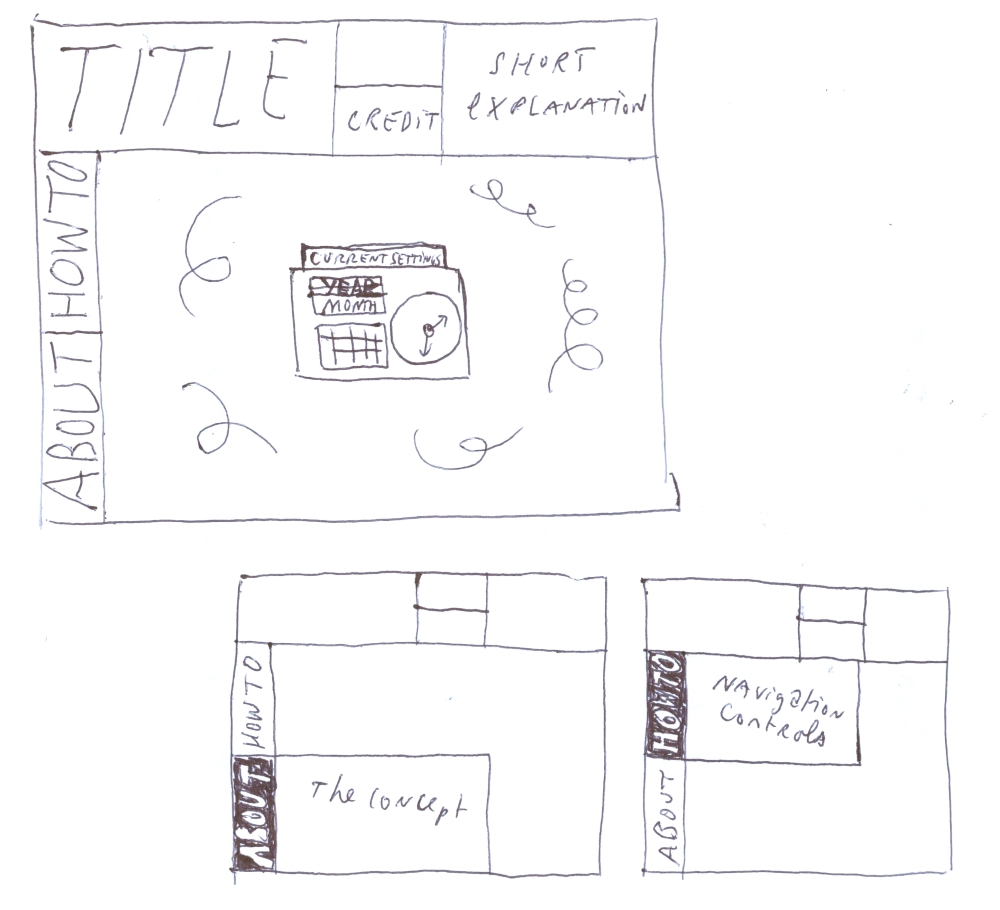 TITLE
CREDIT
SHORT
EXPLANATION
HOW TO
ABOUT
CURRENT SETTINGS
YEAR
MONTH
HOW TO
ABOUT
The concept
HOW TO
ABOUT
NAvigation
Controls